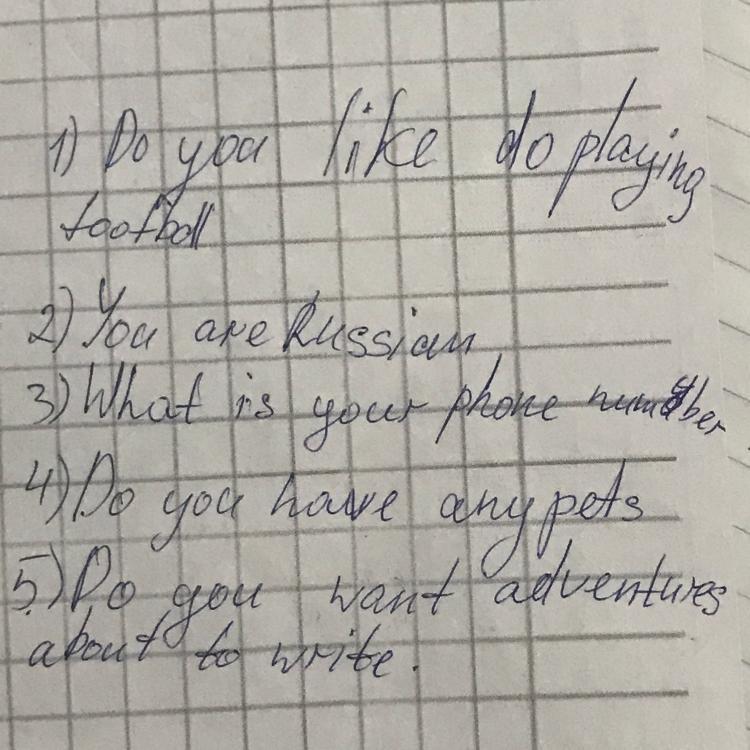 1) Do you like do playing
football
2) You are Russian
3) What is your phone number
4) Do you have any pets
5) Do you want adventures
about to write.